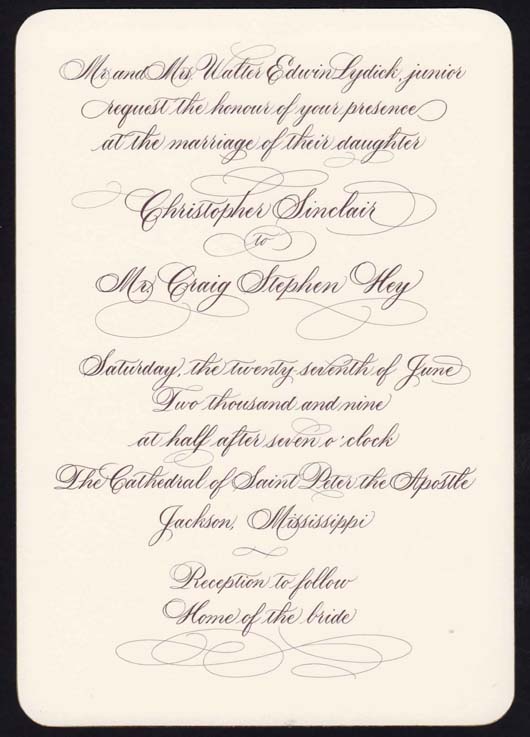 Mr. and Mrs. Walter Edwin Lydick, junior
request the honour of your presence
at the marriage of their daughter
Christopher Sinclair
to
Mr. Craig Stephen Hey
Saturday, the twenty-seventh of June
Two thousand and nine
at half after seven o'clock
The Cathedral of Saint Peter the Apostle
Jackson, Mississippi
Reception to follow
Home of the bride